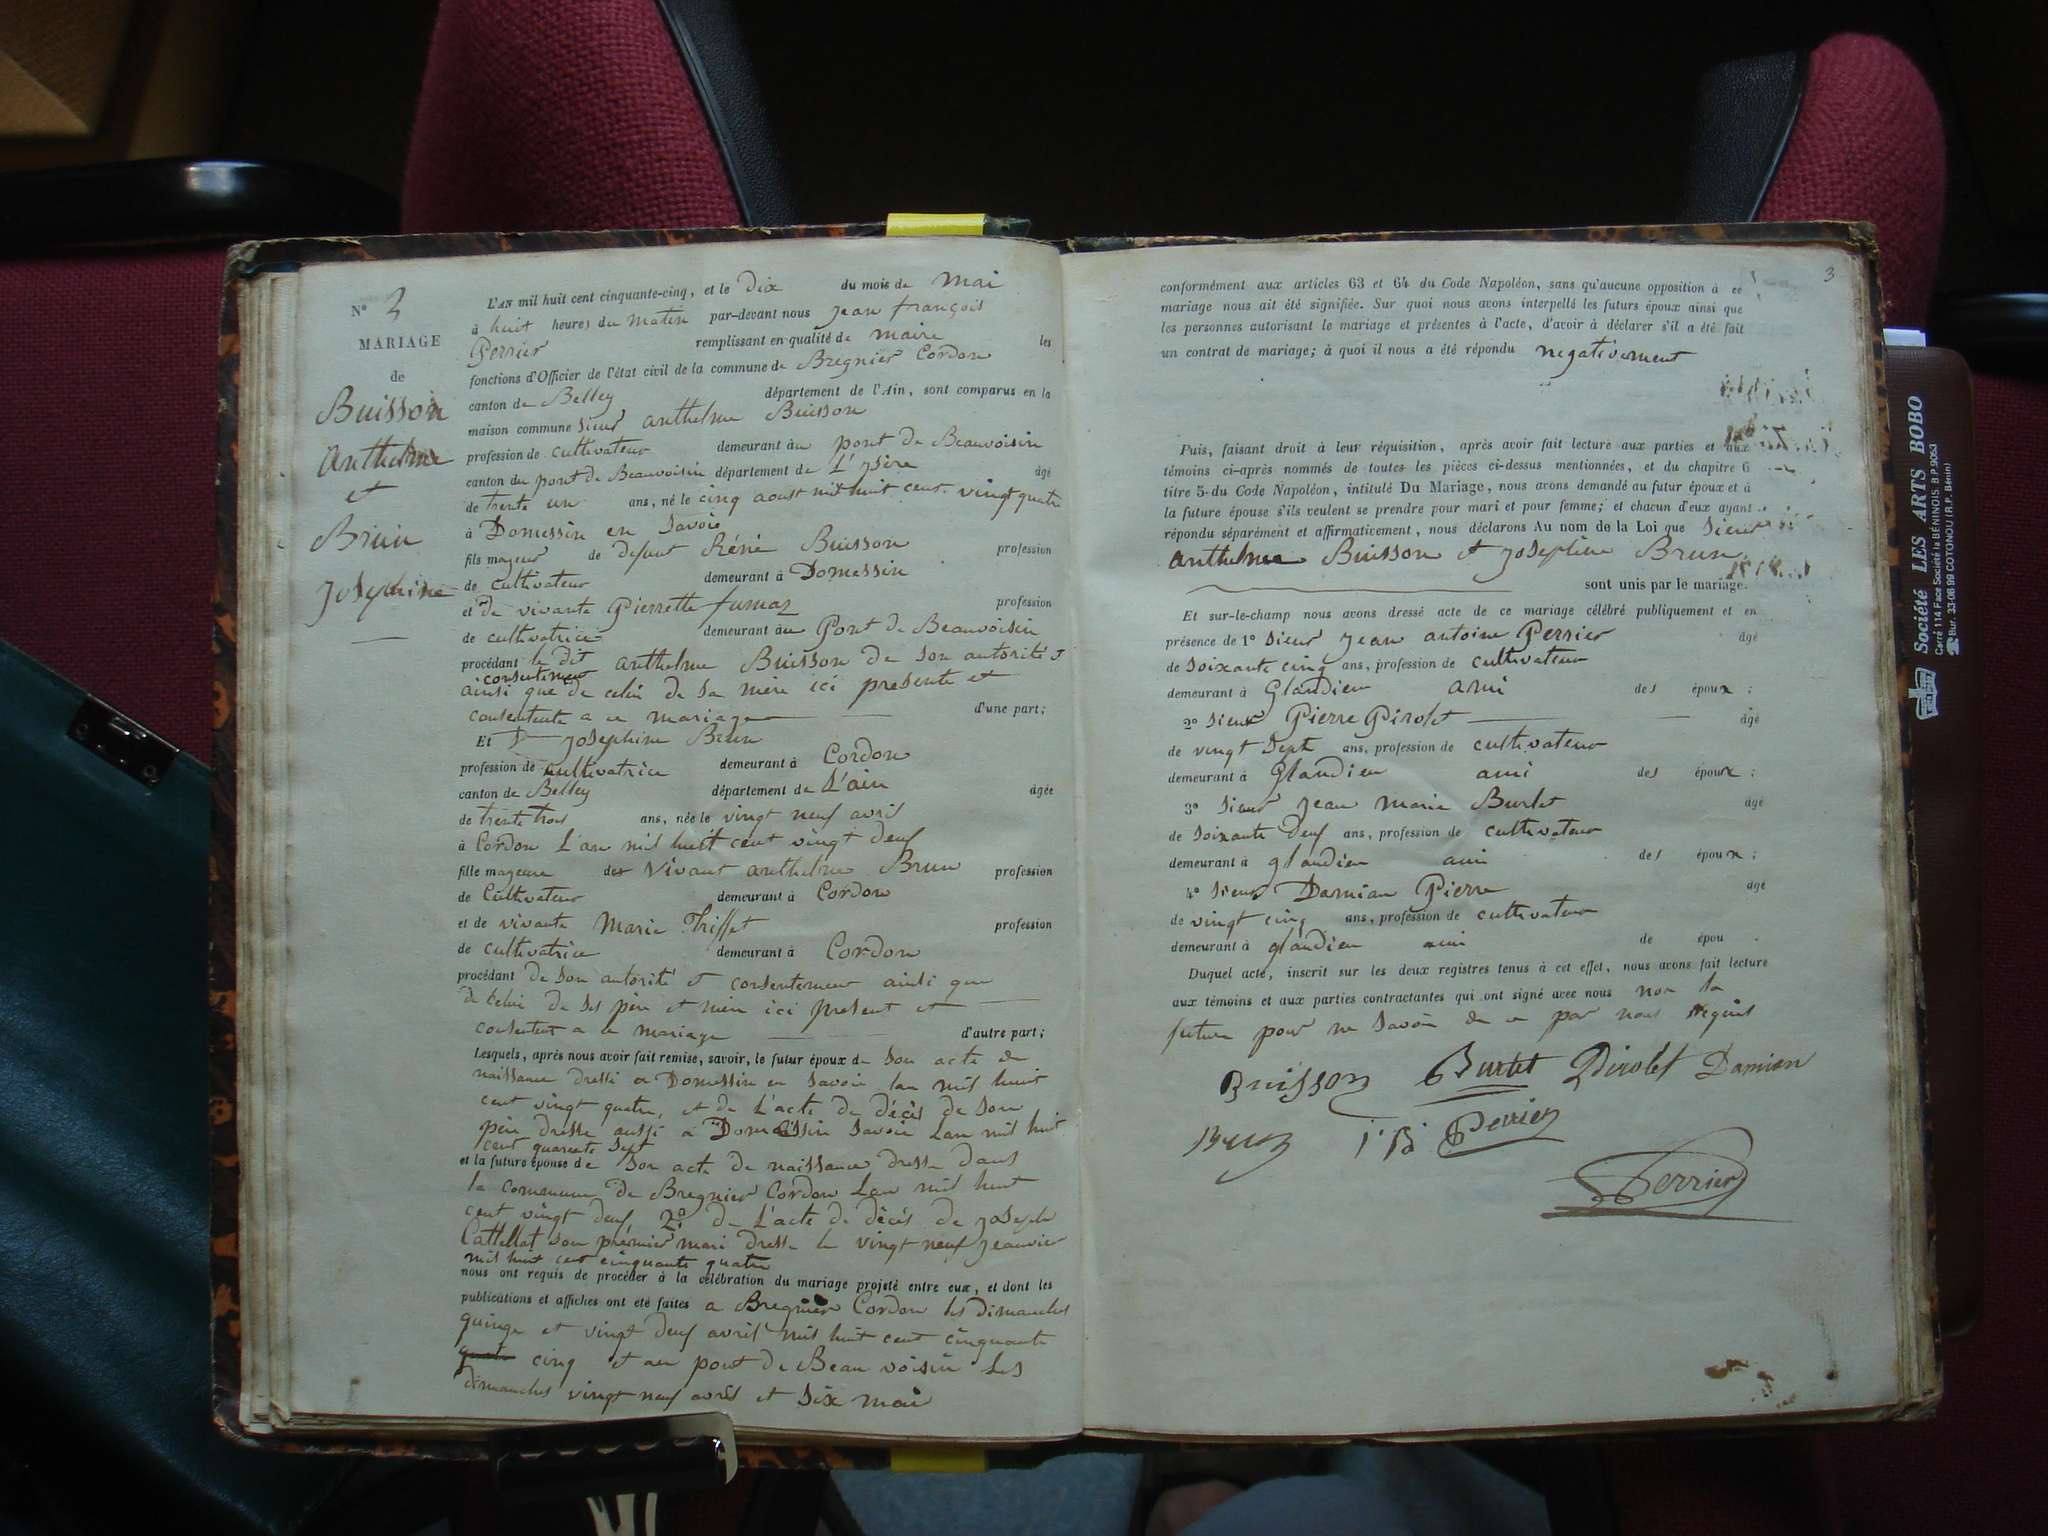 N° 3
MARIAGE
de
Buisson
Anthelme
et
Brun
Josephine
L'AN mil huit cent cinquante-cinq, et le Dix du mois de Mai
à huit heures du Matin par-devant nous Jean françois
Perrier remplissant en qualité de Maire les
fonctions d'Officier de l'état civil de la commune de Bregnier Cordon
canton de Belley département de l'Ain, sont comparus en la
maison commune Sieur Anthelme Buisson
profession de cultivateur demeurant au pont de Beauvoisin
canton du pont de Beauvoisin département de L'Isère âgé
de trente un ans, né le cinq aoust mil huit cent vingt quatre
à Domessin en Savoie
fils majeur de defunt Réné Buisson profession
de cultivateur demeurant à Domessin
et de vivante Pierrette fumaz profession
de cultivatrice demeurant au Pont de Beauvoisin
procédant le dit Anthelme Buisson de Son autorité et
consentement
ainsi que de celui de Sa mère ici presente et
consentente a ce mariage d'une part;
Et Josephine Brun
profession de cultivatrice demeurant à Cordon
canton de Belley département de L'ain âgée
de trente trois ans, née le vingt neuf avril
à Cordon L'an mil huit cent vingt deux
fille majeure des Vivant anthelme Brun profession
de Cultivateur demeurant à Cordon
et de vivante Marie Triffet profession
de cultivatrice demeurant à Cordon
procédant de Son autorité et consentement ainsi que
de celui de Ses père et mère ici présent et
consentent a ce mariage d'autre part;
Lesquels, après nous avoir fait remise, savoir, le futur époux de Son acte de
naissance dressé a Domessin en Savoie lan mil huit
cent vingt quatre, et de L'acte de décès de Son
père dressé aussi a Domessin Savoie Lan mil huit
cent quarante Sept
et la future épouse de Son acte de naissance dressé dans
la commune de Bregnier Cordon Lan mil huit
cent vingt deux, 2° de L'acte de décès de Joseph
Cattellat son premier mari dressé le vingt neuf Jeanvier
mil huit cent cinquante quatre
nous ont requis de procéder à la célébration du mariage projeté entre eux, et dont les
publications et affiches ont été faites a Bregnier Cordon les Dimanches
quinze et vingt deux avril mil huit cent cinquante
cinq et au pont de Beau voisin Les
dimanches vingt neuf avril et Six mai
3
conformément aux articles 63 et 64 du Code Napoléon, sans qu'aucune opposition à ce
mariage nous ait été signifiée. Sur quoi nous avons interpellé les futurs époux ainsi que
les personnes autorisant le mariage et présentes à l'acte, d'avoir à déclarer s'il a été fait
un contrat de mariage; à quoi il nous a été répondu negativement
Puis, faisant droit à leur réquisition, après avoir fait lecture aux parties et aux
témoins ci-après nommés de toutes les pièces ci-dessus mentionnées, et du chapitre 6
titre 5 du Code Napoléon, intitulé Du Mariage, nous avons demandé au futur époux et à
la future épouse s'ils veulent se prendre pour mari et pour femme; et chacun d'eux ayant
répondu séparément et affirmativement, nous déclarons Au nom de la Loi que Sieur
Anthelme Buisson et Josephine Brun
sont unis par le mariage.
Et sur-le-champ nous avons dressé acte de ce mariage célébré publiquement et en
présence de 1° Sieur Jean antoine Perrier âgé
de Soixante cinq ans, profession de cultivateur
demeurant à Glandieu ami des époux ;
2° Sieur Pierre Pirolet âgé
de vingt Sept ans, profession de cultivateur
demeurant à Glandieu ami des époux ;
3° Sieur Jean Marie Burlet âgé
de Soixante deux ans, profession de cultivateur
demeurant à glandieu ami des époux ;
4° Sieur Damian Pierre âgé
de vingt cinq ans, profession de cultivateur
demeurant à glandieu ami de épou
Duquel acte, inscrit sur les deux registres tenus à cet effet, nous avons fait lecture
aux témoins et aux parties contractantes qui ont signé avec nous non la
future pour ne Savoir de ce par nous requis
Buisson Burlet Pirolet Damian
Brun Perrier
Perrier
Société LES ARTS BOBO
Carré 114 Face Société la BÉNINOIS. B.P. 9053
Bur. 33-06-99 COTONOU (R.P. Bénin)